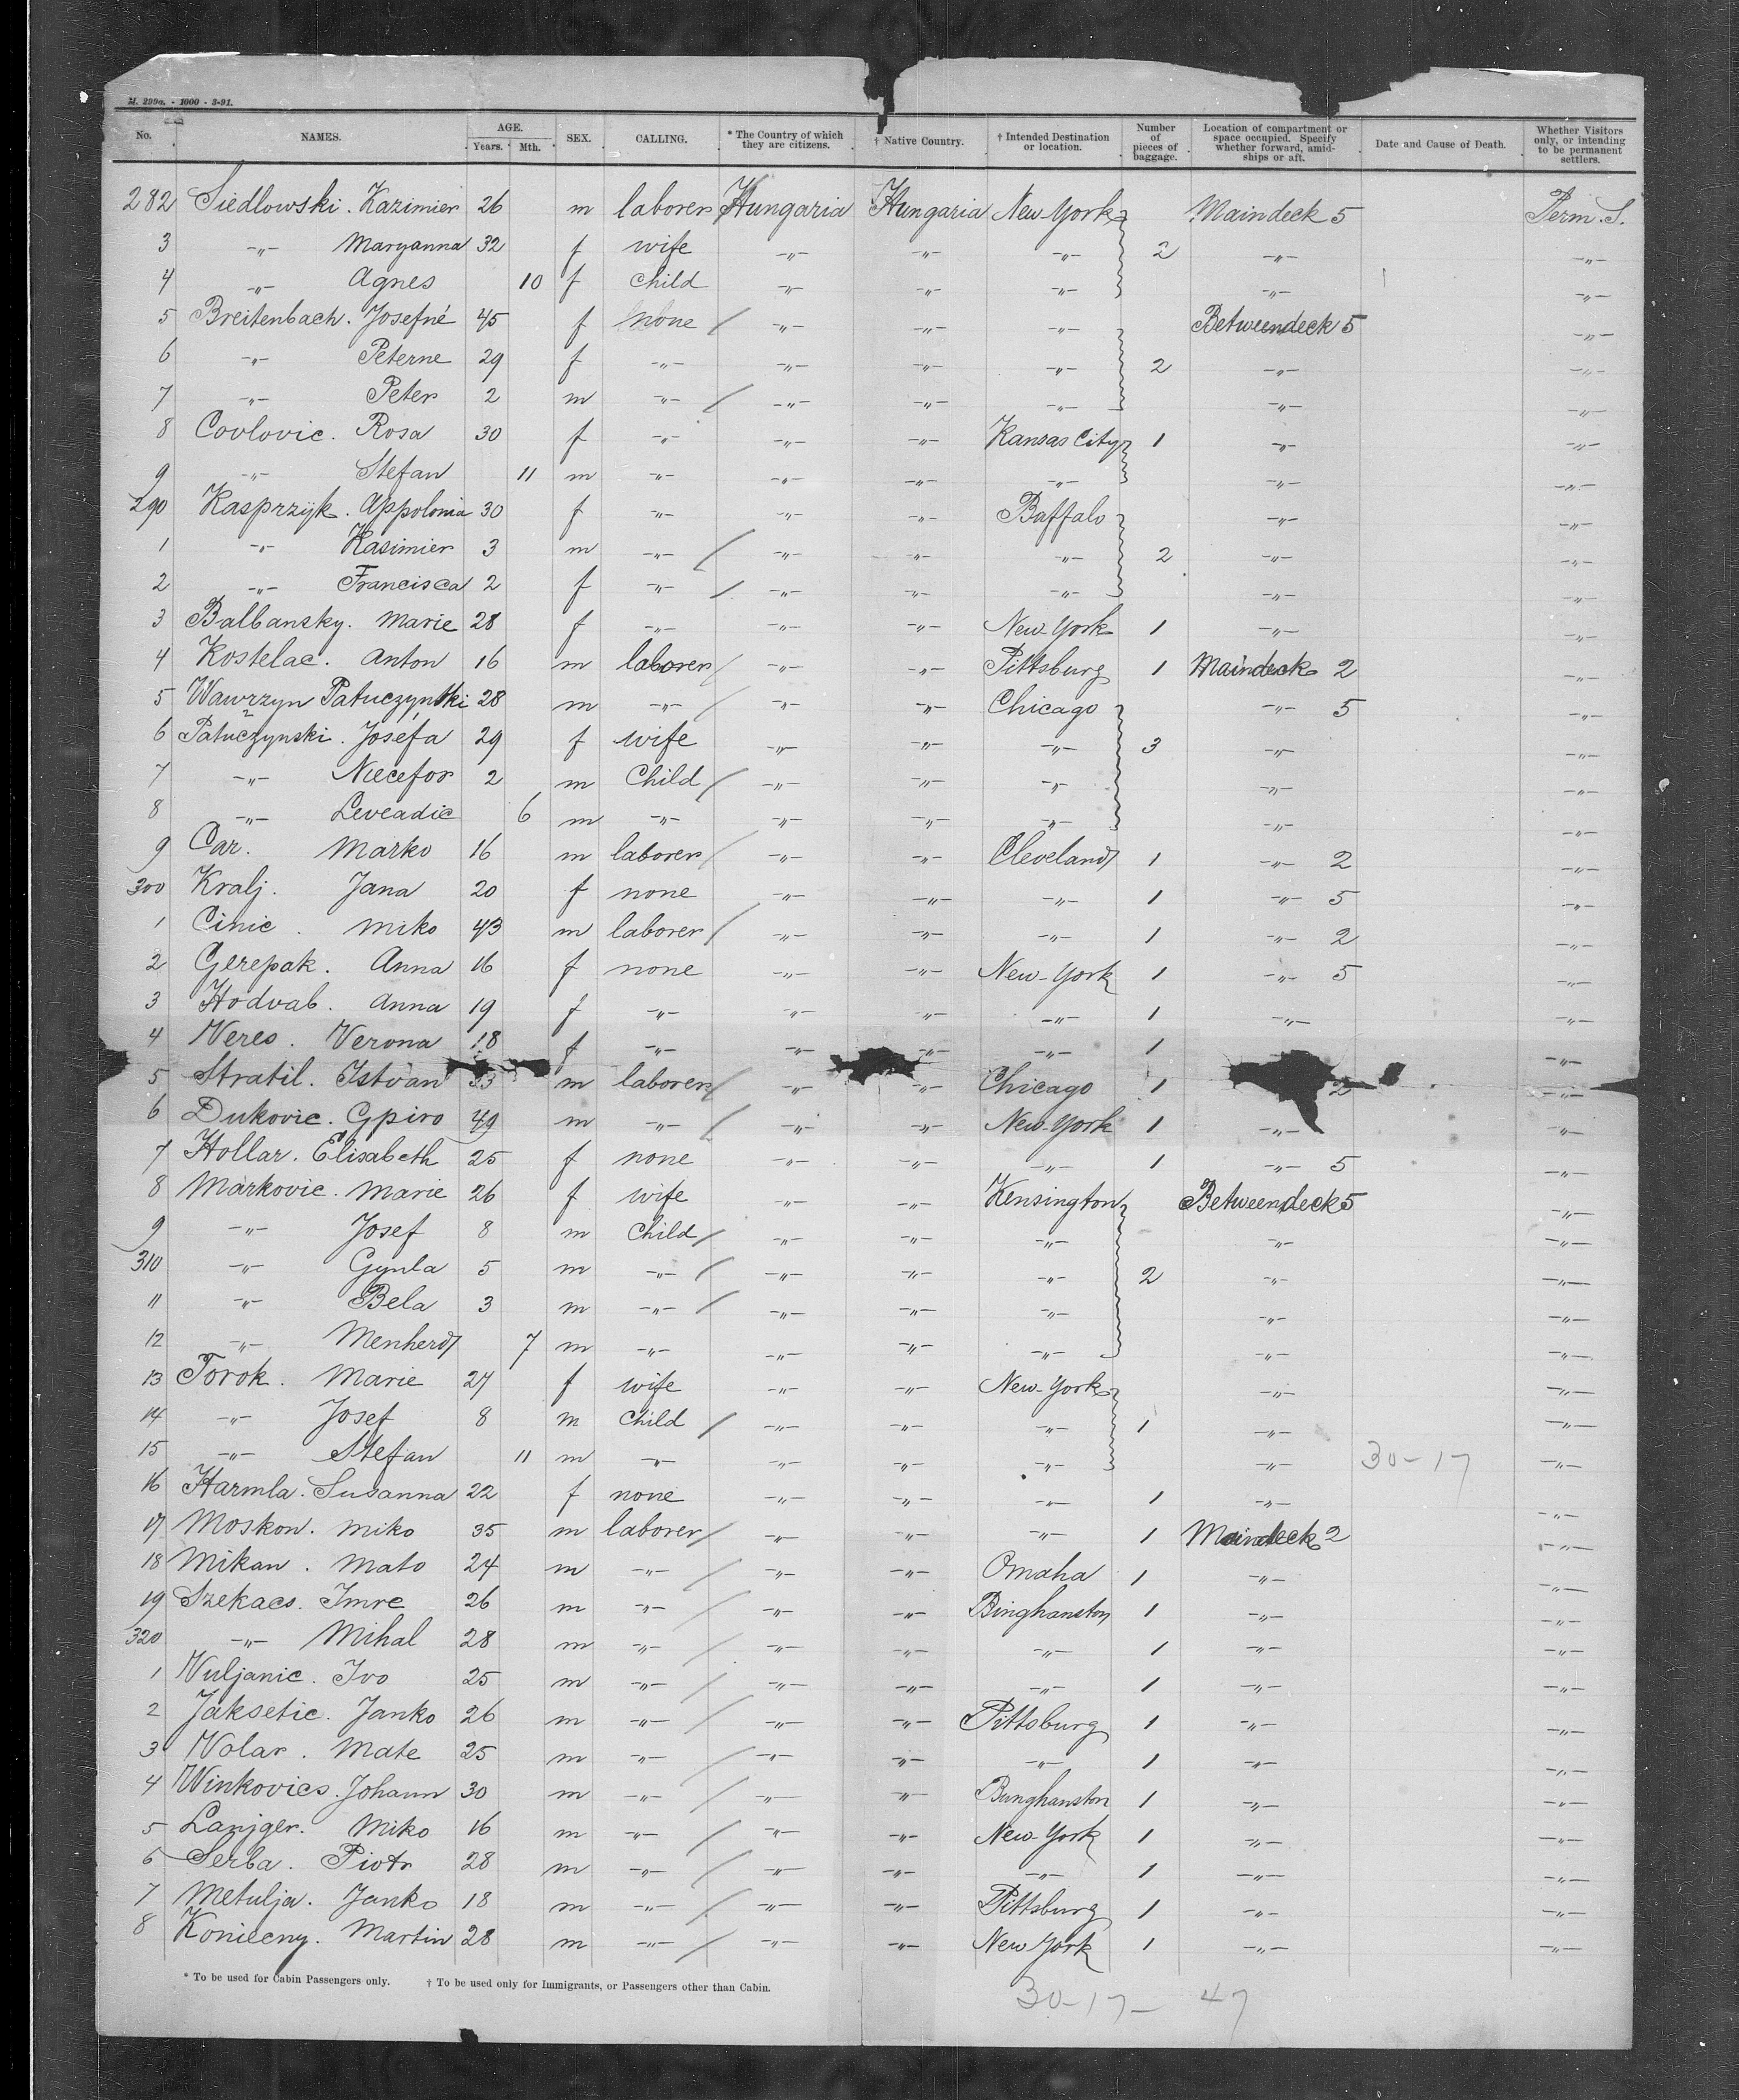 M. 299a. - 1000 - 3-91.
No. NAMES. AGE. Years. Mth. SEX. CALLING. * The Country of which they are citizens. † Native Country. † Intended Destination or location. Number of pieces of baggage. Location of compartment or space occupied. Specify whether forward, amidships or aft. Date and Cause of Death. Whether Visitors only, or intending to be permanent settlers.
282 Siedlowski. Kazimier 26 m laborer Hungaria Hungaria New York Maindeck 5 Perm. S.
3 -"- Maryanna 32 f wife -"- -"- -"- 2 -"- -"-
4 -"- Agnes 10 f Child -"- -"- -"- -"- -"-
5 Breitenbach. Josefné 45 f none / -"- -"- -"- Betweendeck 5 -"-
6 -"- Peterne 29 f -"- -"- -"- -"- 2 -"- -"-
7 -"- Peter 2 m -"- / -"- -"- -"- -"- -"-
8 Covlovic. Rosa 30 f -"- -"- -"- Kansas City 1 -"- -"-
9 -"- Stefan 11 m -"- -"- -"- -"- -"- -"-
290 Kasprzyk. Appolonia 30 f -"- -"- -"- Baffalo -"- -"-
1 -"- Kasimier 3 m -"- / -"- -"- -"- 2 -"- -"-
2 -"- Francisca 2 f -"- / -"- -"- -"- -"- -"-
3 Balbansky. Marie 28 f -"- -"- -"- New-York 1 -"- -"-
4 Kostelac. Anton 16 m laborer / -"- -"- Pittsburg 1 Maindeck 2 -"-
5 Wawrzyn Patuczynski 28 m -"- / -"- -"- Chicago -"- 5 -"-
6 Patuczynski. Josefa 29 f wife -"- -"- -"- 3 -"- -"-
7 -"- Niecefor 2 m Child / -"- -"- -"- -"- -"-
8 -"- Leveadie 6 m -"- -"- -"- -"- -"- -"-
9 Car. Marko 16 m laborer / -"- -"- Cleveland 1 -"- 2 -"-
300 Kralj. Jana 20 f none -"- -"- -"- 1 -"- 5 -"-
1 Cinic. Miko 43 m laborer / -"- -"- -"- 1 -"- 2 -"-
2 Gerepak. Anna 16 f none -"- -"- New-York 1 -"- 5 -"-
3 Hodvab. Anna 19 f -"- -"- -"- -"- 1 -"- -"-
4 Veres. Verona 18 f -"- -"- -"- -"- 1 -"-
5 Stratil. Istvan 33 m laborer / -"- -"- Chicago 1 2 -"-
6 Dukovic. Gpiro 49 m -"- / -"- -"- New-York 1 -"- -"-
7 Hollar. Elisabeth 25 f none -"- -"- -"- 1 -"- 5 -"-
8 Markovic. Marie 26 f wife -"- -"- Kensington Betweendeck 5 -"-
9 -"- Josef 8 m Child / -"- -"- -"- -"- -"-
310 -"- Gyula 5 m -"- / -"- -"- -"- 2 -"- -"-
11 -"- Bela 3 m -"- / -"- -"- -"- -"- -"-
12 -"- Menherd 7 m -"- -"- -"- -"- -"- -"-
13 Torok. Marie 27 f wife -"- -"- New-York -"- -"-
14 -"- Josef 8 m Child / -"- -"- -"- 1 -"- -"-
15 -"- Stefan 11 m -"- -"- -"- -"- -"- 30-17 -"-
16 Harmla. Susanna 22 f none -"- -"- -"- 1 -"- -"-
17 Moskon. Miko 35 m laborer / -"- -"- -"- 1 Maindeck 2 -"-
18 Mikan. Mato 24 m -"- / -"- -"- Omaha 1 -"- -"-
19 Szekacs. Imre 26 m -"- / -"- -"- Binghanston 1 -"- -"-
320 -"- Mihal 28 m -"- / -"- -"- -"- 1 -"- -"-
1 Vuljanic. Ivo 25 m -"- / -"- -"- -"- 1 -"- -"-
2 Jaksetic. Janko 26 m -"- / -"- -"- Pittsburg 1 -"- -"-
3 Volar. Mate 25 m -"- / -"- -"- -"- 1 -"- -"-
4 Winkovics. Johann 30 m -"- / -"- -"- Bunghanston 1 -"- -"-
5 Lanjger. Miko 16 m -"- / -"- -"- New-York 1 -"- -"-
6 Serba. Piotr 28 m -"- / -"- -"- -"- 1 -"- -"-
7 Metulja. Janko 18 m -"- / -"- -"- Pittsburg 1 -"- -"-
8 Koniecny. Martin 28 m -"- / -"- -"- New York 1 -"- -"-
* To be used for Cabin Passengers only. † To be used only for Immigrants, or Passengers other than Cabin.
30-17- 47